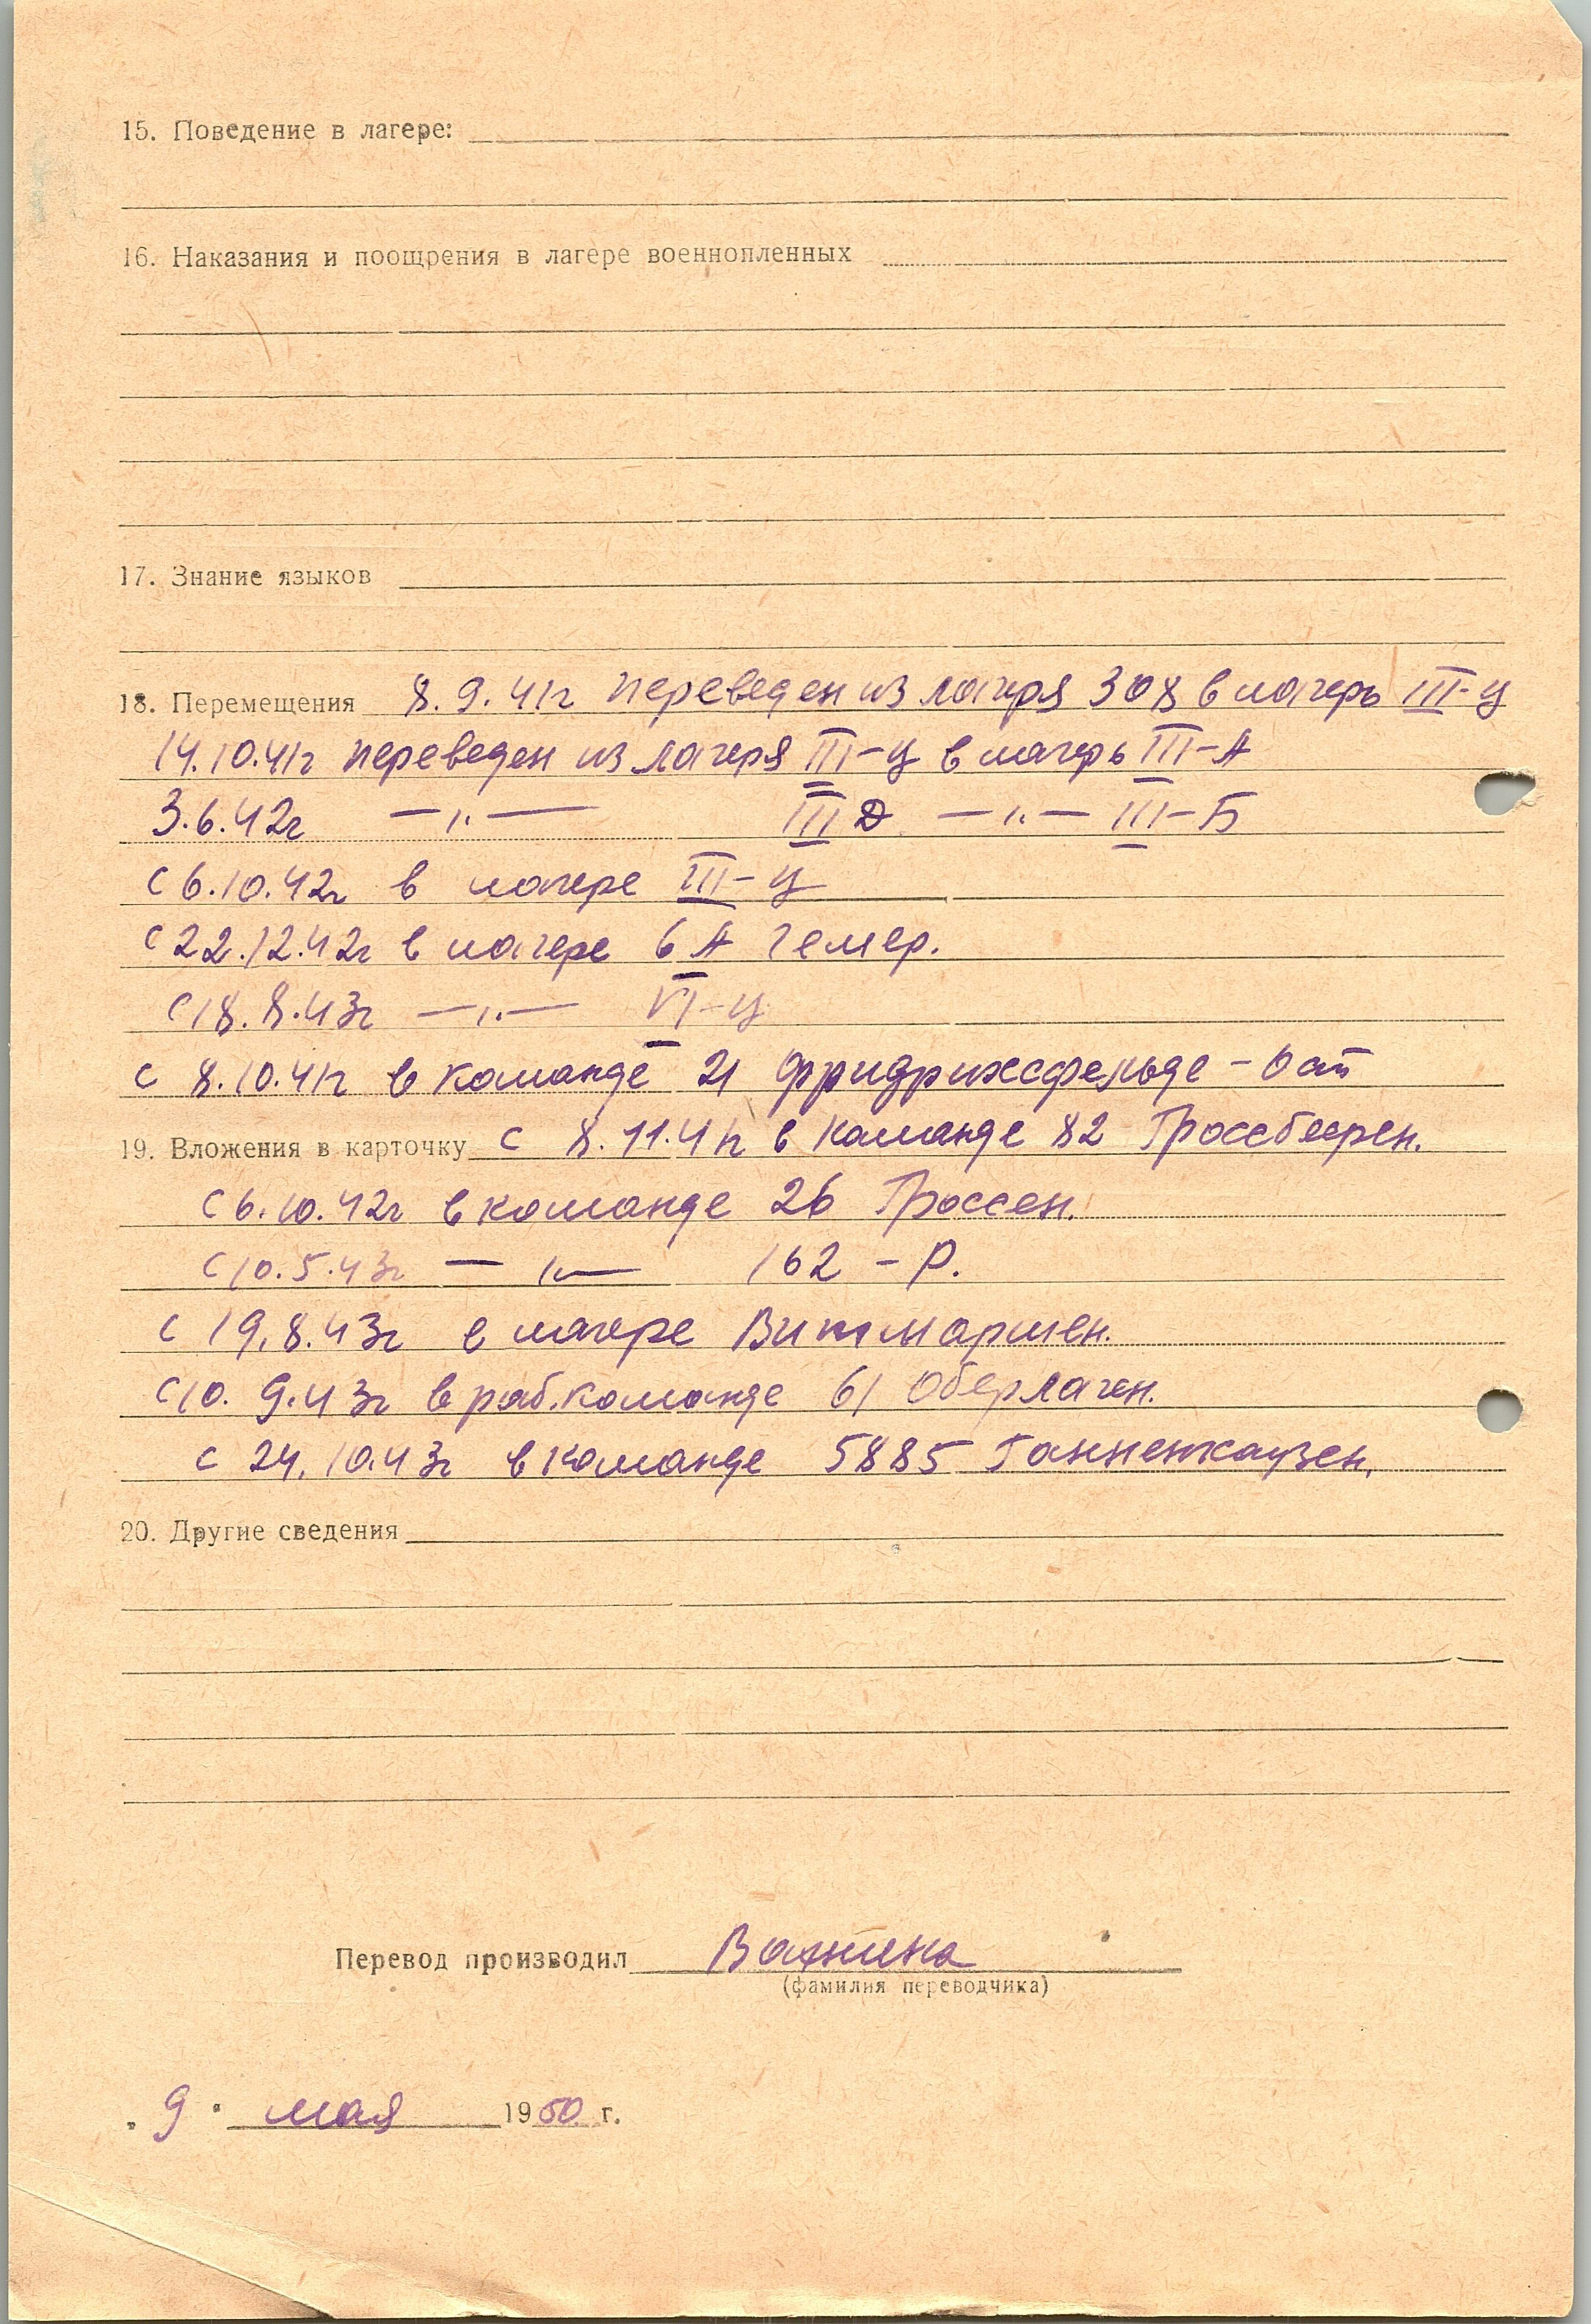 15. Поведение в лагере:
16. Наказания и поощрения в лагере военнопленных
17. Знание языков
18. Перемещения 8.9.41г переведен из лагеря 308 в лагерь III-ц
14.10.41г переведен из лагеря III-ц в лагерь III-А
3.6.42г —〃— III Д —〃— III-Б
с 6.10.42г в лагере III-ц
с 22.12.42г в лагере 6 А Гемер.
с 18.8.43г —〃— VI-ц
с 8.10.41г в команде 21 Фридрихсфельде - Ост
19. Вложения в карточку с 8.11.41г в команде 82 Гроссбеерен.
с 6.10.42г в команде 26 Гроссен.
с 10.5.43г —〃— 162 - Р.
с 19.8.43г в лагере Витмаршен.
с 10.9.43г в раб.команде 61 Оберланген.
с 24.10.43г в команде 5885
20. Другие сведения
Перевод производил
(фамилия переводчика)
„9" мая 1950 г.